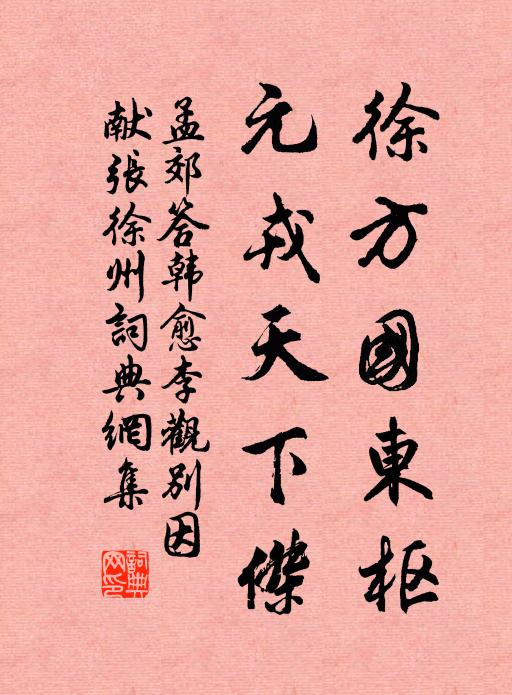 徐方國東枢
元戎天下傑
孟郊答韩愈李觀别因
献張徐州詞典網集
詞典网印